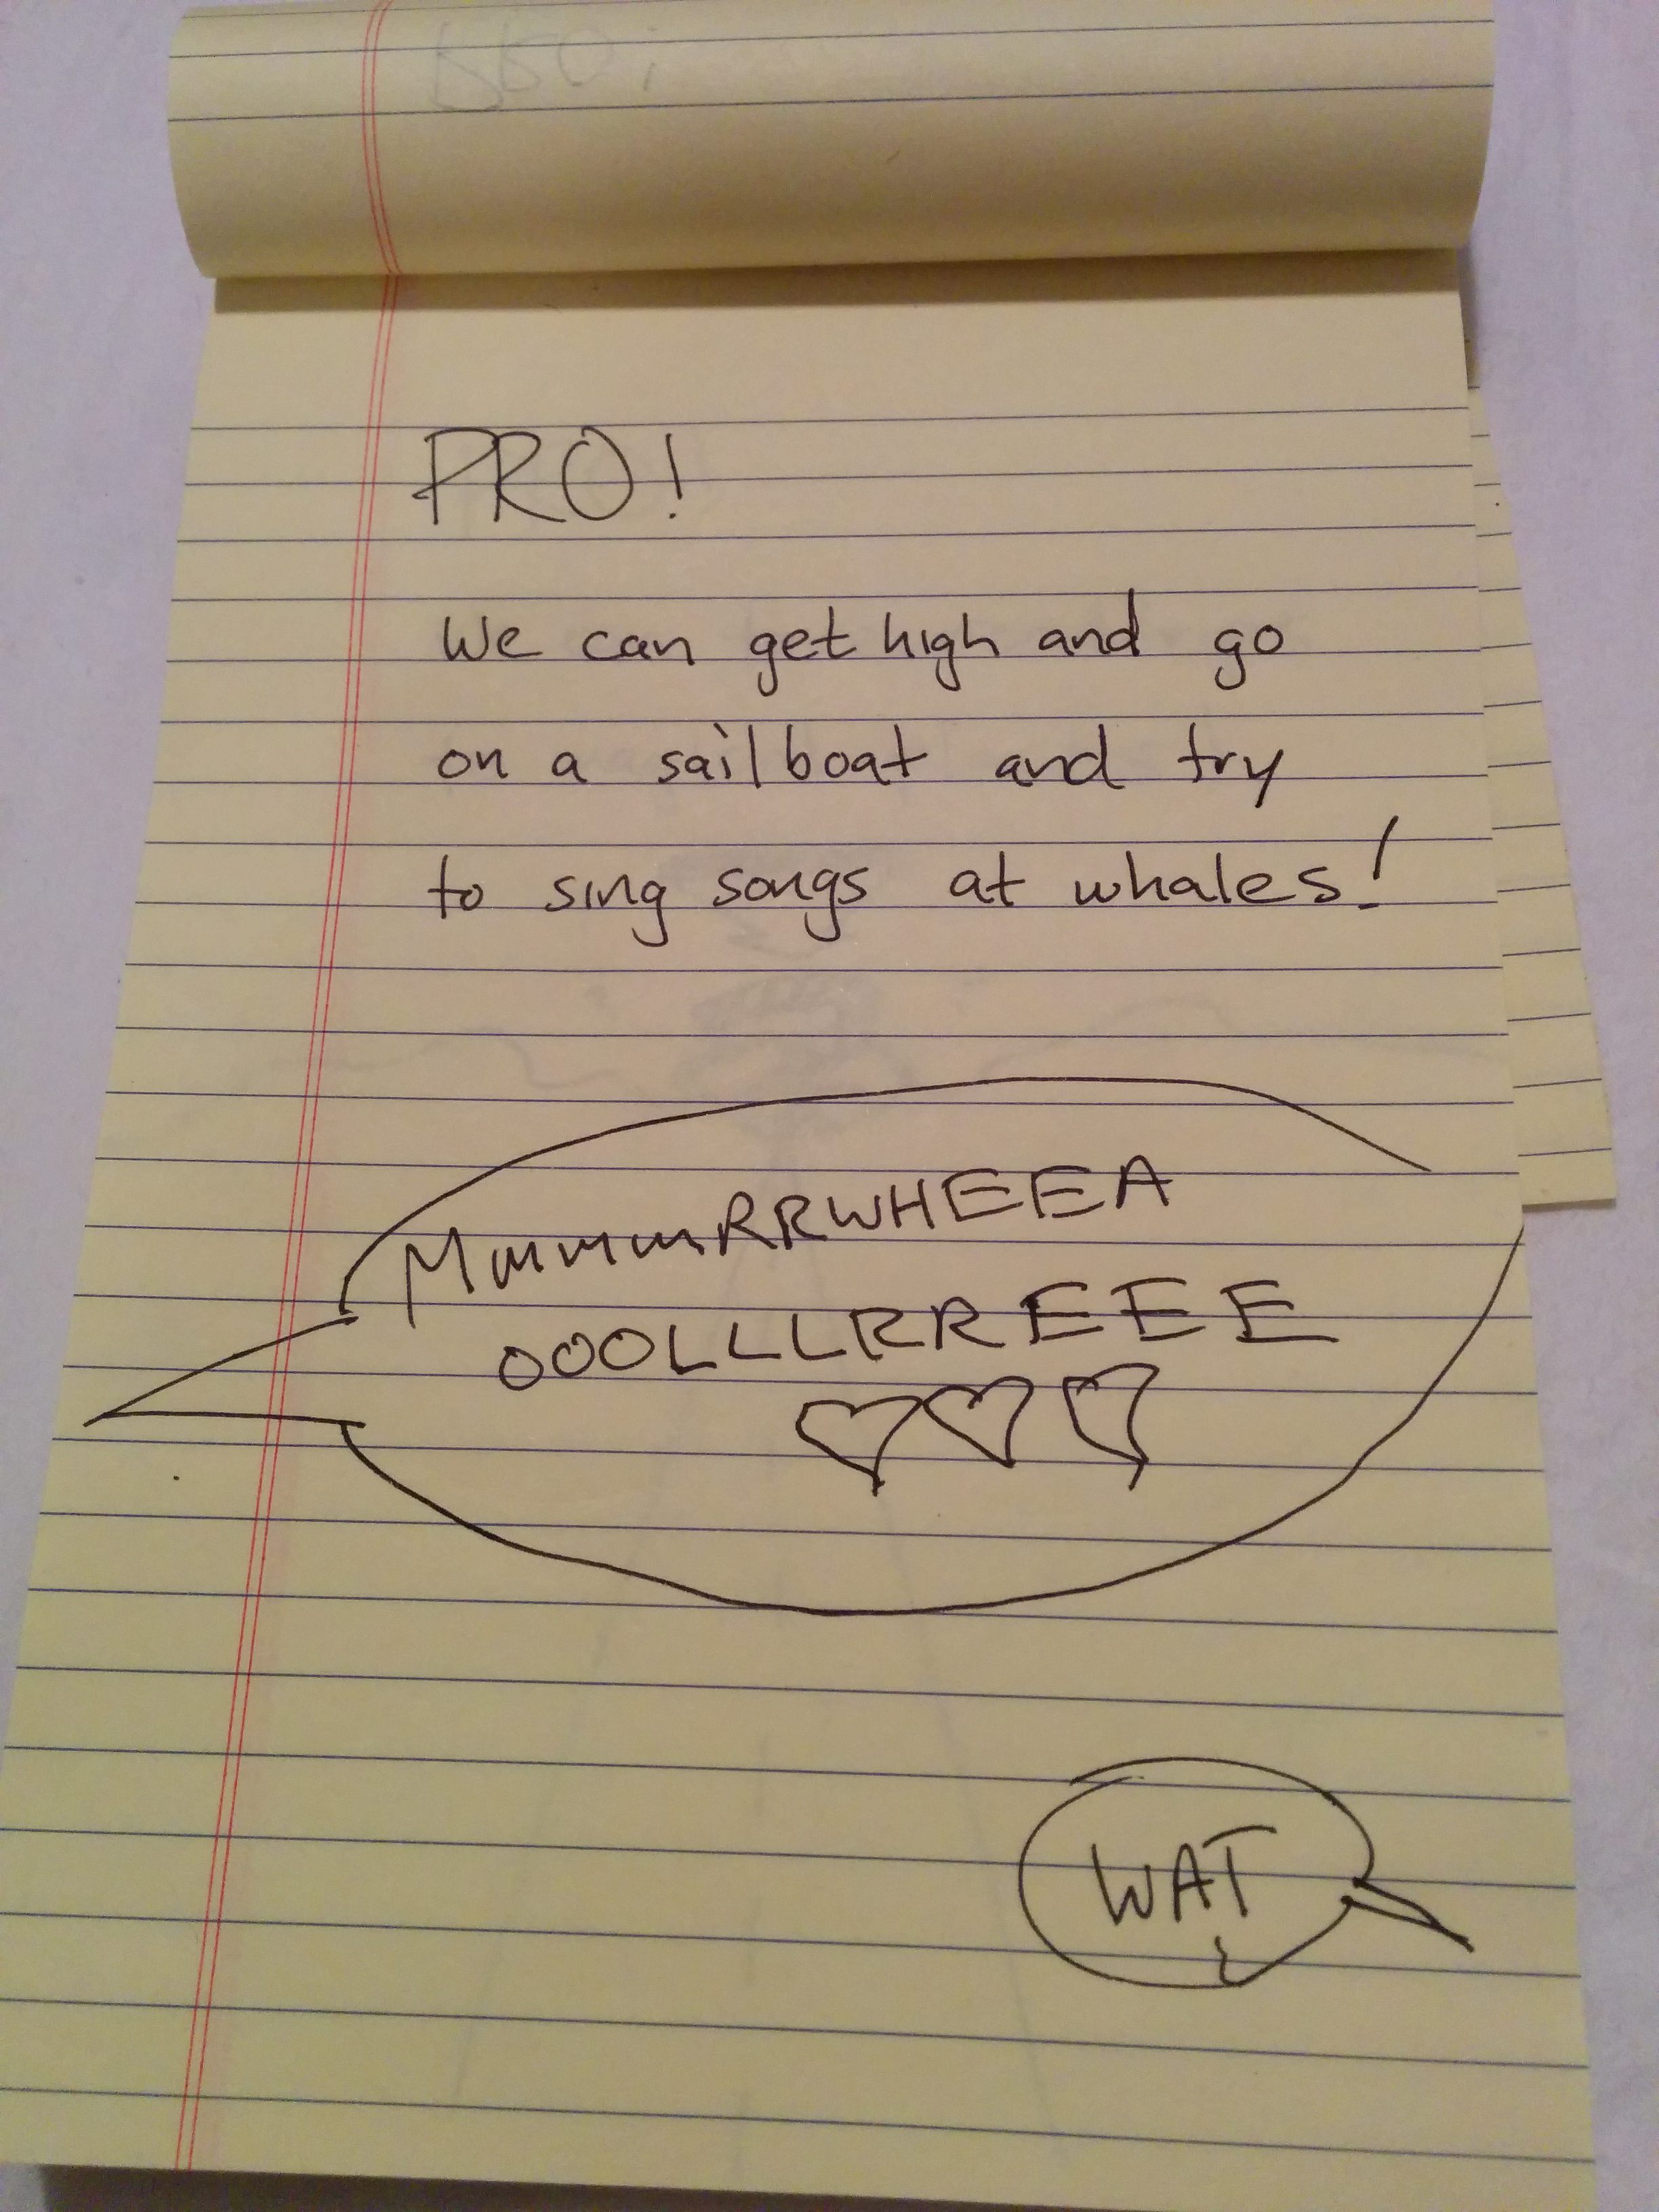 PRO!
We can get high and go
on a sailboat and try
to sing songs at whales!
MmmmmRRWHEEA
OOOLLLRREEE
♡♡♡
WAT